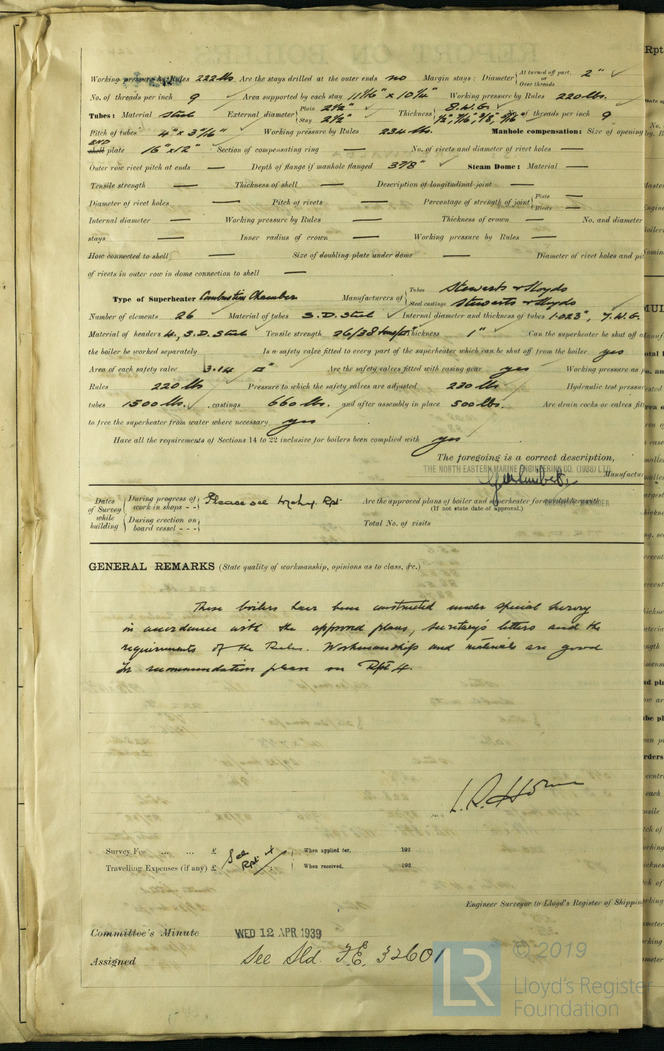 Working pressure by Rules 220 lbs Are the stays drilled at the outer ends no Margin stays: Diameter { At turned off part, or Over threads 2"
No. of threads per inch 9 Area supported by each stay Working pressure by Rules 220 lbs.
Tubes: Material Steel External diameter { Plain 2½" Stay 2½" Thickness { 8 W.G. No. of threads per inch 9
Pitch of tubes 4" x 3 15/16" Working pressure by Rules 234 lbs. Manhole compensation: Size of opening
shell plate 16" x 12" Section of compensating ring — No. of rivets and diameter of rivet holes —
Outer row rivet pitch at ends — Depth of flange if manhole flanged 3 7/8" Steam Dome: Material —
Tensile strength — Thickness of shell — Description of longitudinal joint —
Diameter of rivet holes — Pitch of rivets — Percentage of strength of joint { Plate — Rivets —
Internal diameter — Working pressure by Rules — Thickness of crown — No. and diameter
stays — Inner radius of crown — Working pressure by Rules —
How connected to shell — Size of doubling plate under dome — Diameter of rivet holes and
of rivets in outer row in dome connection to shell —
Type of Superheater Combustion Chamber Manufacturers of { Tubes Stewarts & Lloyds Steel castings Stewarts & Lloyds
Number of elements 26 Material of tubes S.D. Steel Internal diameter and thickness of tubes 1.023", 7.W.G.
Material of headers H.S.D. Steel Tensile strength 26/28 tons/□" Thickness 1" Can the superheater be shut off
the boiler be worked separately Is a safety valve fitted to every part of the superheater which can be shut off from the boiler yes
Area of each safety valve 3.14 □" Are the safety valves fitted with easing gear yes Working pressure as
Rules 220 lbs Pressure to which the safety valves are adjusted 230 lbs. Hydraulic test pressure
tubes 1500 lbs. castings 660 lbs. and after assembly in place 500 lbs. Are drain cocks or valves
to free the superheater from water where necessary yes
Have all the requirements of Sections 14 to 22 inclusive for boilers been complied with yes
The foregoing is a correct description,
THE NORTH EASTERN MARINE ENGINEERING CO. (1938) LTD.
Manufactur
Dates of Survey while building { During progress of work in shops - - Please see Mchy. Rpt.
During erection on board vessel - - -
Are the approved plans of boiler and superheater forwarded herewith
(If not state date of approval.)
Total No. of visits
GENERAL REMARKS (State quality of workmanship, opinions as to class, &c.)
These boilers have been constructed under special survey
in accordance with the approved plans, Secretary's letters and the
requirements of the Rules. Workmanship and materials are good
For recommendation please see Rpt 4.
L. R. Horne
Survey Fee ... ... £ See Rpt 4 When applied for, 192
Travelling Expenses (if any) £ When received, 192
Engineer Surveyor to Lloyd's Register of Shipping
Committee's Minute WED 12 APR 1939
Assigned See Sld. F.E. 32601
© 2019
LR Lloyd's Register
Foundation